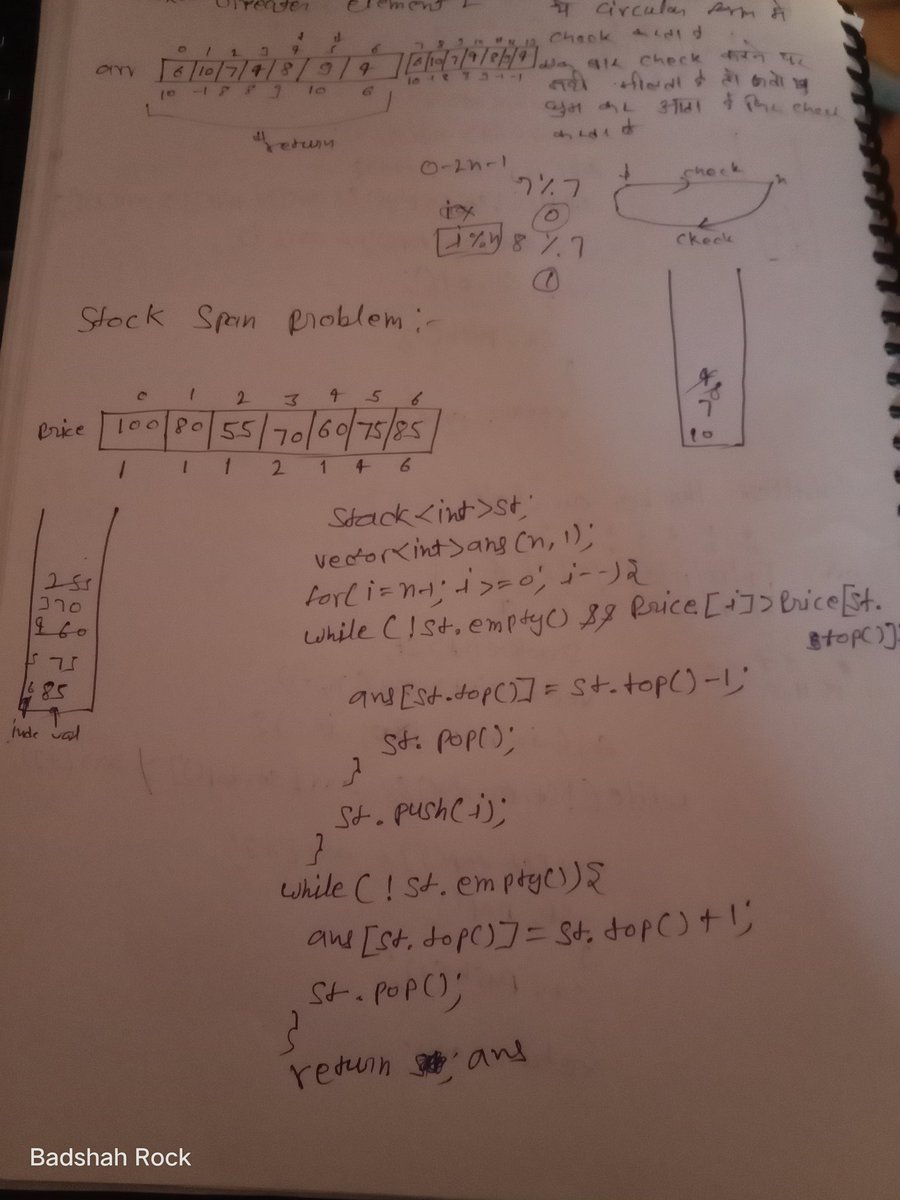 Greater Element
में circular form में
check करता है
0 1 2 3 4 5 6
arr 6 10 7 4 8 9 4 6 10 7 4 8 9 4
एक बार check करने पर
10 -1 8 8 9 10 6 10 -1 8 8 9 -1 -1
return
check
0-2n-1
7 % 7
0
i%n 8 % 7
1
check n
check
Stock Span Problem :-
0 1 2 3 4 5 6
Price 100 80 55 70 60 75 85
1 1 1 2 1 4 6
4
8
7
10
stack<int>st;
vector<int>ans(n,1);
for(i=n-1; i>=0; i--){
while(!st.empty() && Price[i]>Price[st.
top()]
ans[st.top()] = st.top()-i;
st.pop();
}
st.push(i);
}
while(!st.empty()){
ans[st.top()] = st.top()+1;
st.pop();
}
return ; ans
2 55
3 70
4 60
5 75
6 85
inde val
Badshah Rock